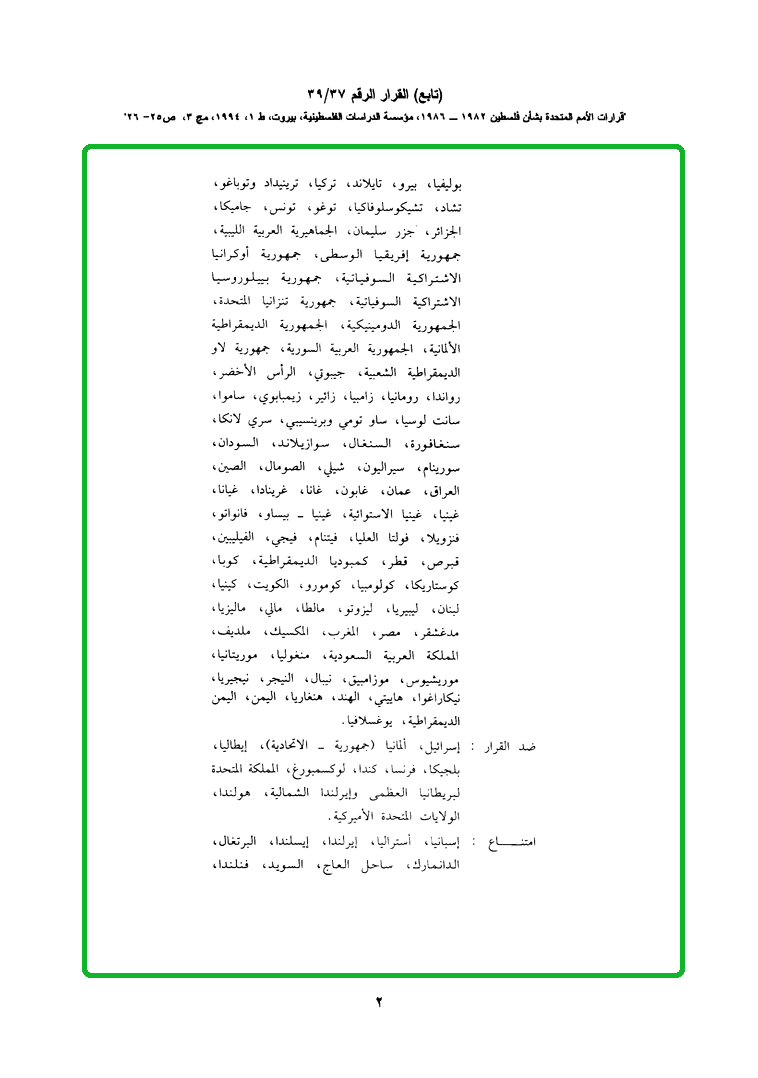 (تابع) القرار الرقم ٣٩/٣٧
"قرارات الأمم المتحدة بشأن فلسطين ١٩٨٢ ــ ١٩٨٦، مؤسسة الدراسات الفلسطينية، بيروت، ط ١، ١٩٩٤، مج ٣، ص٢٥- ٢٦"
بوليفيا، بيرو، تايلاند، تركيا، ترينيداد وتوباغو،
تشاد، تشيكوسلوفاكيا، توغو، تونس، جاميكا،
الجزائر، جزر سليمان، الجماهيرية العربية الليبية،
جمهورية إفريقيا الوسطى، جمهورية أوكرانيا
الاشتراكية السوفياتية، جمهورية بييلوروسيا
الاشتراكية السوفياتية، جمهورية تنزانيا المتحدة،
الجمهورية الدومينيكية، الجمهورية الديمقراطية
الألمانية، الجمهورية العربية السورية، جمهورية لاو
الديمقراطية الشعبية، جيبوتي، الرأس الأخضر،
رواندا، رومانيا، زامبيا، زائير، زيمبابوي، ساموا،
سانت لوسيا، ساو تومي وبرينسيبي، سري لانكا،
سنغافورة، السنغال، سوازيلاند، السودان،
سورينام، سيراليون، شيلي، الصومال، الصين،
العراق، عمان، غابون، غانا، غرينادا، غيانا،
غينيا، غينيا الاستوائية، غينيا ــ بيساو، فانواتو،
فنزويلا، فولتا العليا، فيتنام، فيجي، الفيليبين،
قبرص، قطر، كمبوديا الديمقراطية، كوبا،
كوستاريكا، كولومبيا، كومورو، الكويت، كينيا،
لبنان، ليبيريا، ليزوتو، مالطا، مالي، ماليزيا،
مدغشقر، مصر، المغرب، المكسيك، ملديف،
المملكة العربية السعودية، منغوليا، موريتانيا،
موريشيوس، موزامبيق، نيبال، النيجر، نيجيريا،
نيكاراغوا، هاييتي، الهند، هنغاريا، اليمن، اليمن
الديمقراطية، يوغسلافيا.
ضد القرار : إسرائيل، ألمانيا (جمهورية ــ الاتحادية)، إيطاليا،
بلجيكا، فرنسا، كندا، لوكسمبورغ، المملكة المتحدة
لبريطانيا العظمى وإيرلندا الشمالية، هولندا،
الولايات المتحدة الأميركية.
امتنـــــاع : إسبانيا، أستراليا، إيرلندا، إيسلندا، البرتغال،
الدانمارك، ساحل العاج، السويد، فنلندا،
٢